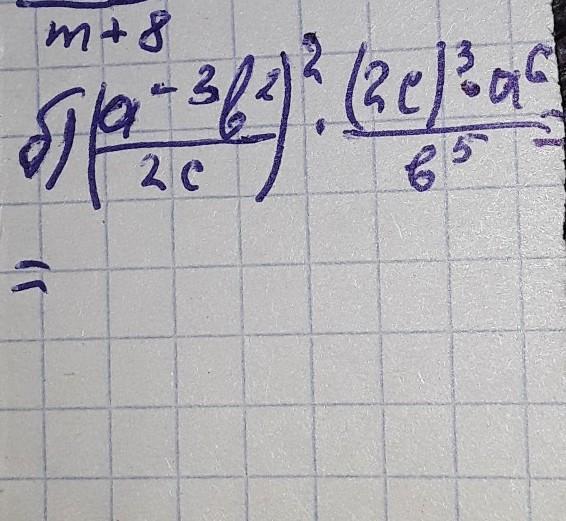 m + 8
б) (a⁻³b² / 2c)² · (2c)³ · a⁶ / b⁵ =
=